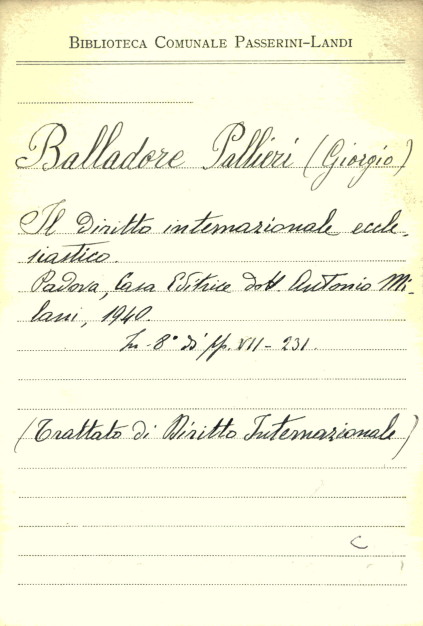 BIBLIOTECA COMUNALE PASSERINI-LANDI
Balladore Pallieri (Giorgio)
Il diritto internazionale eccle-
siastico.
Padova, Casa Editrice dott. Antonio Mi-
lani, 1940.
In-8° di pp. VII-231.
(Trattato di Diritto Internazionale)
C